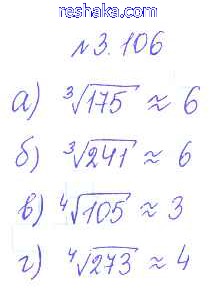 reshaka.com
№3.106
а) ∛175 ≈ 6
б) ∛241 ≈ 6
в) ∜105 ≈ 3
г) ∜273 ≈ 4